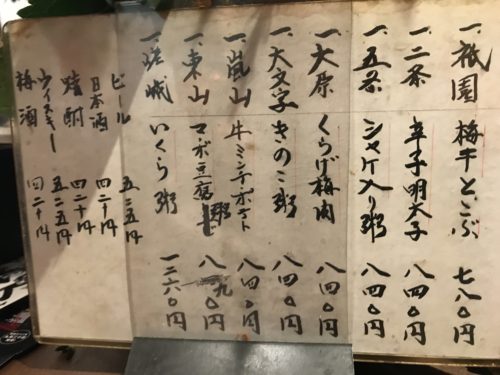 一、祇園 梅干とこぶ 七八〇円
一、二条 辛子明太子 八四〇円
一、五条 シャケ入り粥 八四〇円
一、大原 くらげ梅肉 八四〇円
一、大文字 きのこ粥 八四〇円
一、嵐山 牛ミンチポテト 八四〇円
一、東山 マーボ豆腐粥 八九〇円
一、嵯峨 いくら粥 一二六〇円
ビール 五二五円
日本酒 四二十円
焼酎 四二十円
ウイスキー 五二五円
梅酒 四二十円